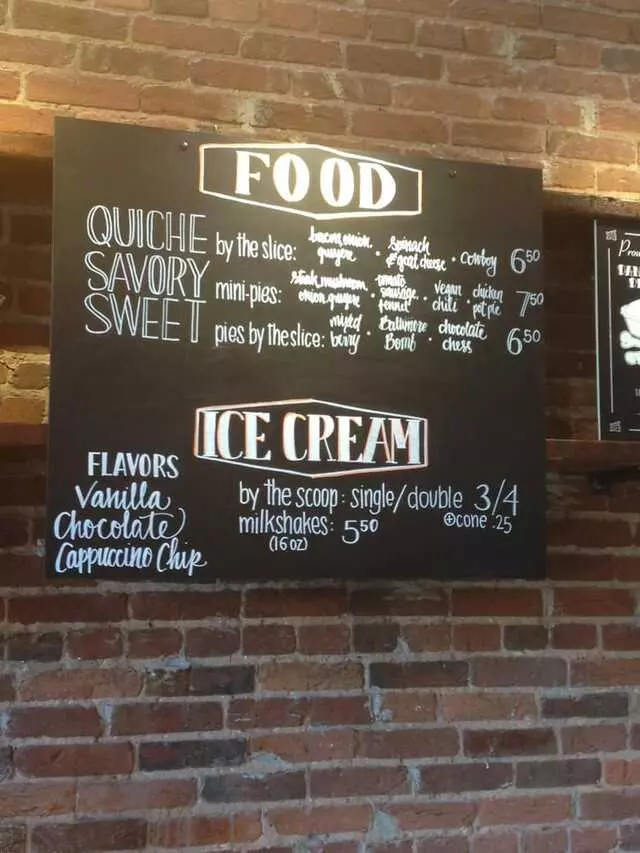 FOOD
QUICHE by the slice: bacon, onion, gruyere · spinach & goat cheese · cowboy 6 50
SAVORY mini-pies: steak, mushroom, onion, gruyere · tomato, sausage, fennel · vegan chili · chicken pot pie 7 50
SWEET pies by the slice: mixed berry · Baltimore Bomb · chocolate chess 6 50
ICE CREAM
FLAVORS
Vanilla
Chocolate
Cappuccino Chip
by the scoop: single/double 3/4
⊕cone .25
milkshakes: 5 50
(16 oz)